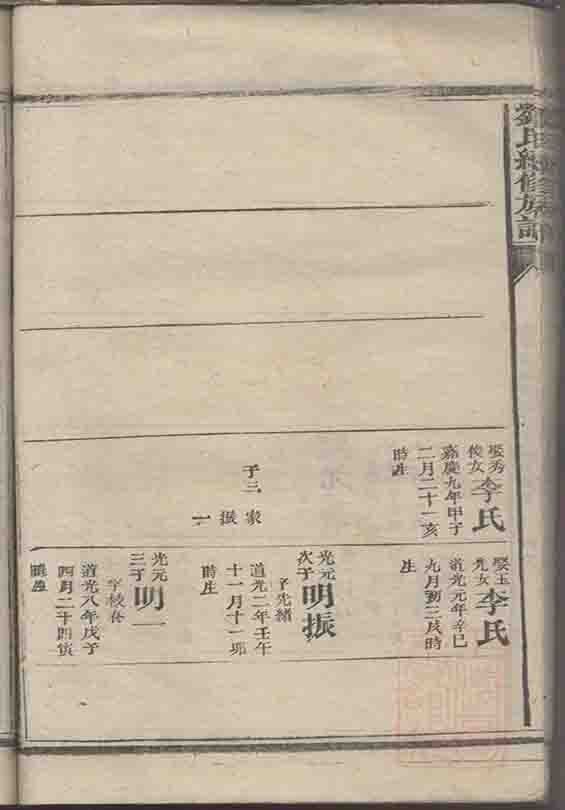 劉氏續修族譜
娶秀
俊女
李氏
嘉慶九年甲子
二月二十一亥
時生
子三 家
振
一
娶玉
光女
李氏
道光元年辛巳
九月初三戌時
生
光元
次子
明振
字先緒
道光二年壬午
十一月十一卯
時生
光元
三子
明一
道光八年戊子
四月二十四寅
時生